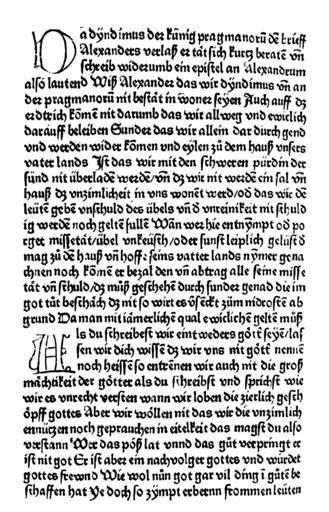 Da dyndimus der künig pragmanorū dē brieff
Alexanders verlaß er tät sich kurcz beratē vñ
schreib widerumb ein epistel an Alexandrum
also lautend Wiß Alexander das wir dyndimus vñ an
der pragmanorū nit bestāt in woner seyen Auch auff dz
erdtrich kōmē nit darumb das wir allweg vnd ewiclich
darauff beleiben Sunder das wir allein dar durch gend
vnd werden wider kōmen vnd eylen zů dem hauß vnsers
vater lands Ist das wir mit den schweren pürdin der
sünd nit überladē werdē/vñ dz wir nit werdē ein sal vñ
hauß dz vnzimlicheit in vns wonēt werd/od das wir dē
leütē gebē vnschuld des übels vñ d vnreinikeit nit schuld
ig werdē noch geltē sullē Wan wer hie entnympt od po
rget missetät/übel vnkeüsch/oder sunst leiplich gelüst d
mag zů dē hauß vñ hoff: seins vatter lands nymer gena
chnen noch kōmē er bezal den vñ abtrag alle seine misse
tät vñ schuld/dz müß geschehē durch sunder genad die im
got tůt beschäch dz nit so wirt es vseckt zům nidrostē ab
grund Da man mit iämerlichē qual ewiclichē geltē müß
Als du schreibest wir eint weders göttē seyē/las
sen wir dich wissē dz wir vns nit göttē nennē
noch heissē so entrēnen wir auch nit die groß
mächtikeit der götter als du schreibst vnd sprichst wie
wir es vnrecht versten wann wir loben die zierlich gesch
öpff gottes Aber wir wöllen nit das wir die vnzimlich
ennüczen noch geprauchen in eitelkeit das magst du also
verstann Wer das pöß lat vnnd das gůt verpringt er
ist nit got Er ist aber ein nachvolger gottes vnd würdet
gottes frewnd Wie wol nün got gar vil ding in gütē be
schaffen hat Ye doch so zympt erbernn frommen leüten